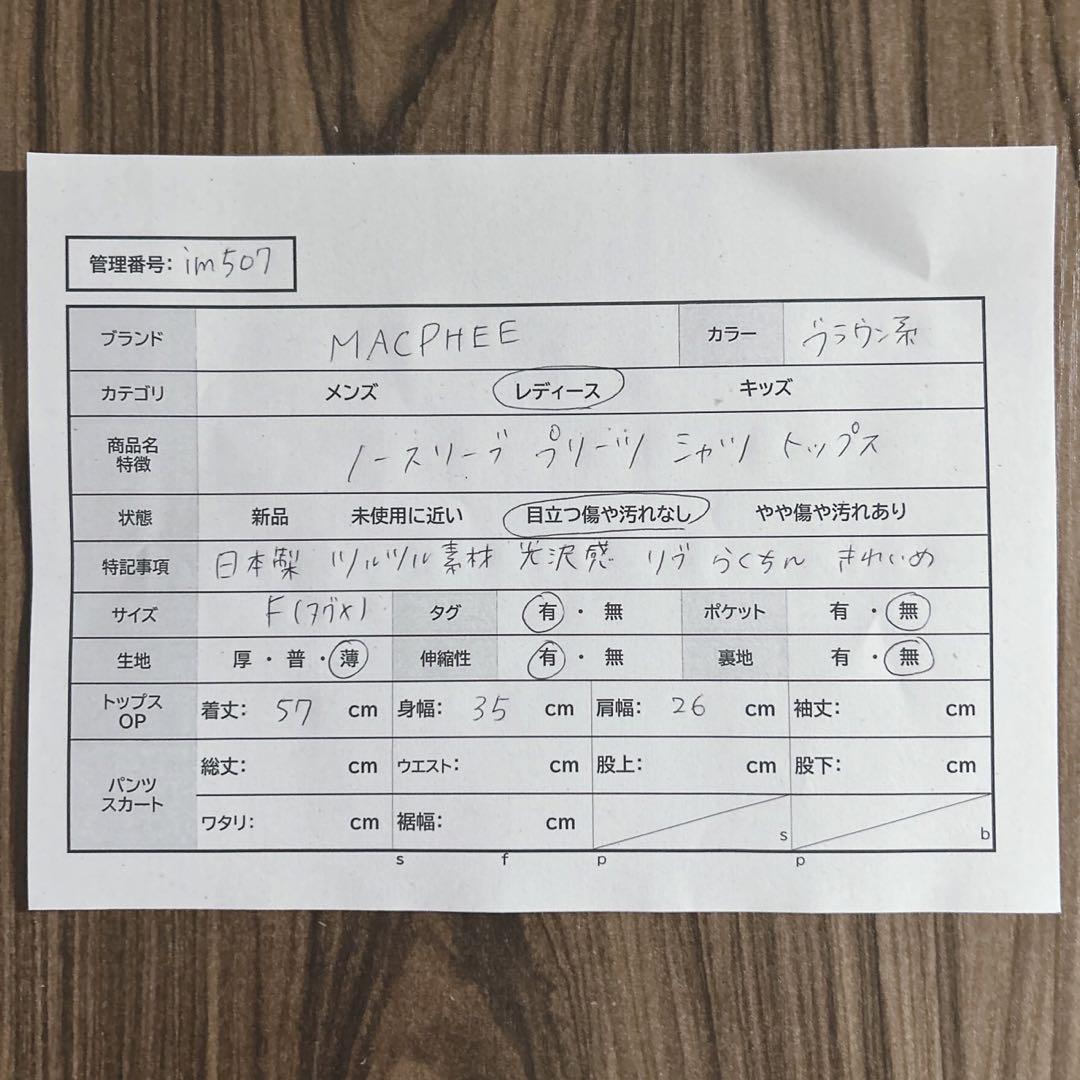 管理番号: im507
ブランド MACPHEE カラー ブラウン系
カテゴリ メンズ レディース キッズ
商品名 特徴 ノースリーブ プリーツ シャツ トップス
状態 新品 未使用に近い 目立つ傷や汚れなし やや傷や汚れあり
特記事項 日本製 ツルツル素材 光沢感 リブ らくちん きれいめ
サイズ F(タグ×) タグ 有・無 ポケット 有・無
生地 厚・普・薄 伸縮性 有・無 裏地 有・無
トップス OP 着丈: 57 cm 身幅: 35 cm 肩幅: 26 cm 袖丈: cm
パンツ スカート 総丈: cm ウエスト: cm 股上: cm 股下: cm
ワタリ: cm 裾幅: cm s b
s f p p